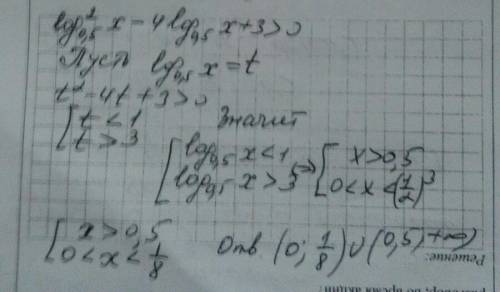 log²₀,₅ x - 4 log₀,₅ x + 3 > 0
Пусть log₀,₅ x = t
t² - 4t + 3 > 0
[ t < 1
t > 3
Значит
[ log₀,₅ x < 1
log₀,₅ x > 3
⇒ [ x > 0,5
0 < x < (1/2)³
[ x > 0,5
0 < x < 1/8
Отв (0; 1/8) ∪ (0,5; +∞)
Решение: